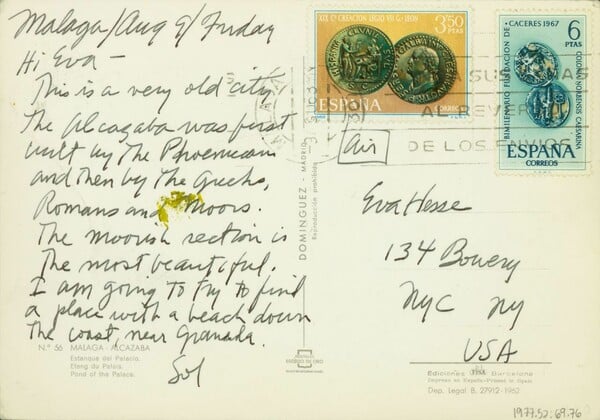 Malaga/Aug 9/Friday
Hi Eva-
This is a very old city.
The Alcazaba was first
built by the Phoenicians
and then by the Greeks,
Romans and Moors.
The moorish section is
the most beautiful.
I am going to try to find
a place with a beach down
the coast, near Granada.
Sol
N.º 56 MALAGA - ALCAZABA
Estanque del Palacio.
Etang du Palais.
Pond of the Palace.
DOMINGUEZ - MADRID
Reproducción prohibida
XIX Cº CREACION LEGIO VII G. LEON
3'50
PTAS
ESPAÑA
CORREOS
BIMILENARIO FUNDACION DE CACERES 1967
COLONIA NORBENSIS CAESARINA
6
PTAS
ESPAÑA
CORREOS
SUS SEÑAS
AL REVERSO
DE LOS ENVIOS
Air
Eva Hesse
134 Bowery
NYC NY
USA
Ediciones Barcelona
Impreso en España-Printed in Spain
Dep. Legal B. 27912-1962
1977.52.69.76